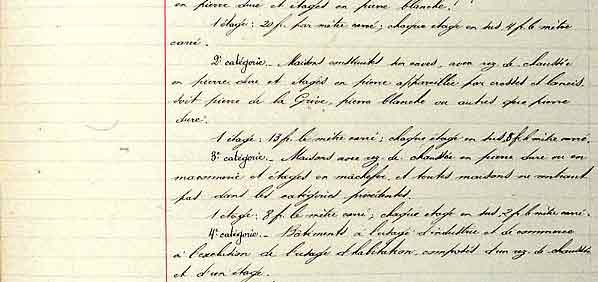 en pierre dure et étages en pierre blanche.
1 étage : 20 f. par mètre carré ; chaque étage en sus 4 f. le mètre
carré.
2e catégorie _ Maisons construites sur caves, avec rez de chaussée
en pierre dure et étages en pierre appareillée par crossets et lancis
soit pierre de la Grève, pierre blanche ou autres que pierre
dure.
1 étage : 13 f. le mètre carré ; chaque étage en sus, 3 f. le mètre carré.
3e catégorie _ Maisons avec rez de chaussée en pierre dure ou en
maçonnerie et étages en mâchefer, et toutes maisons ne rentrant
pas dans les catégories précédentes.
1 étage : 8 f. le mètre carré ; chaque étage en sus, 2 f. le mètre carré.
4e catégorie _ Bâtiments à l'usage d'industrie et de commerce
à l'exclusion de l'usage d'habitation, composés d'un rez de chaussée
et d'un étage.